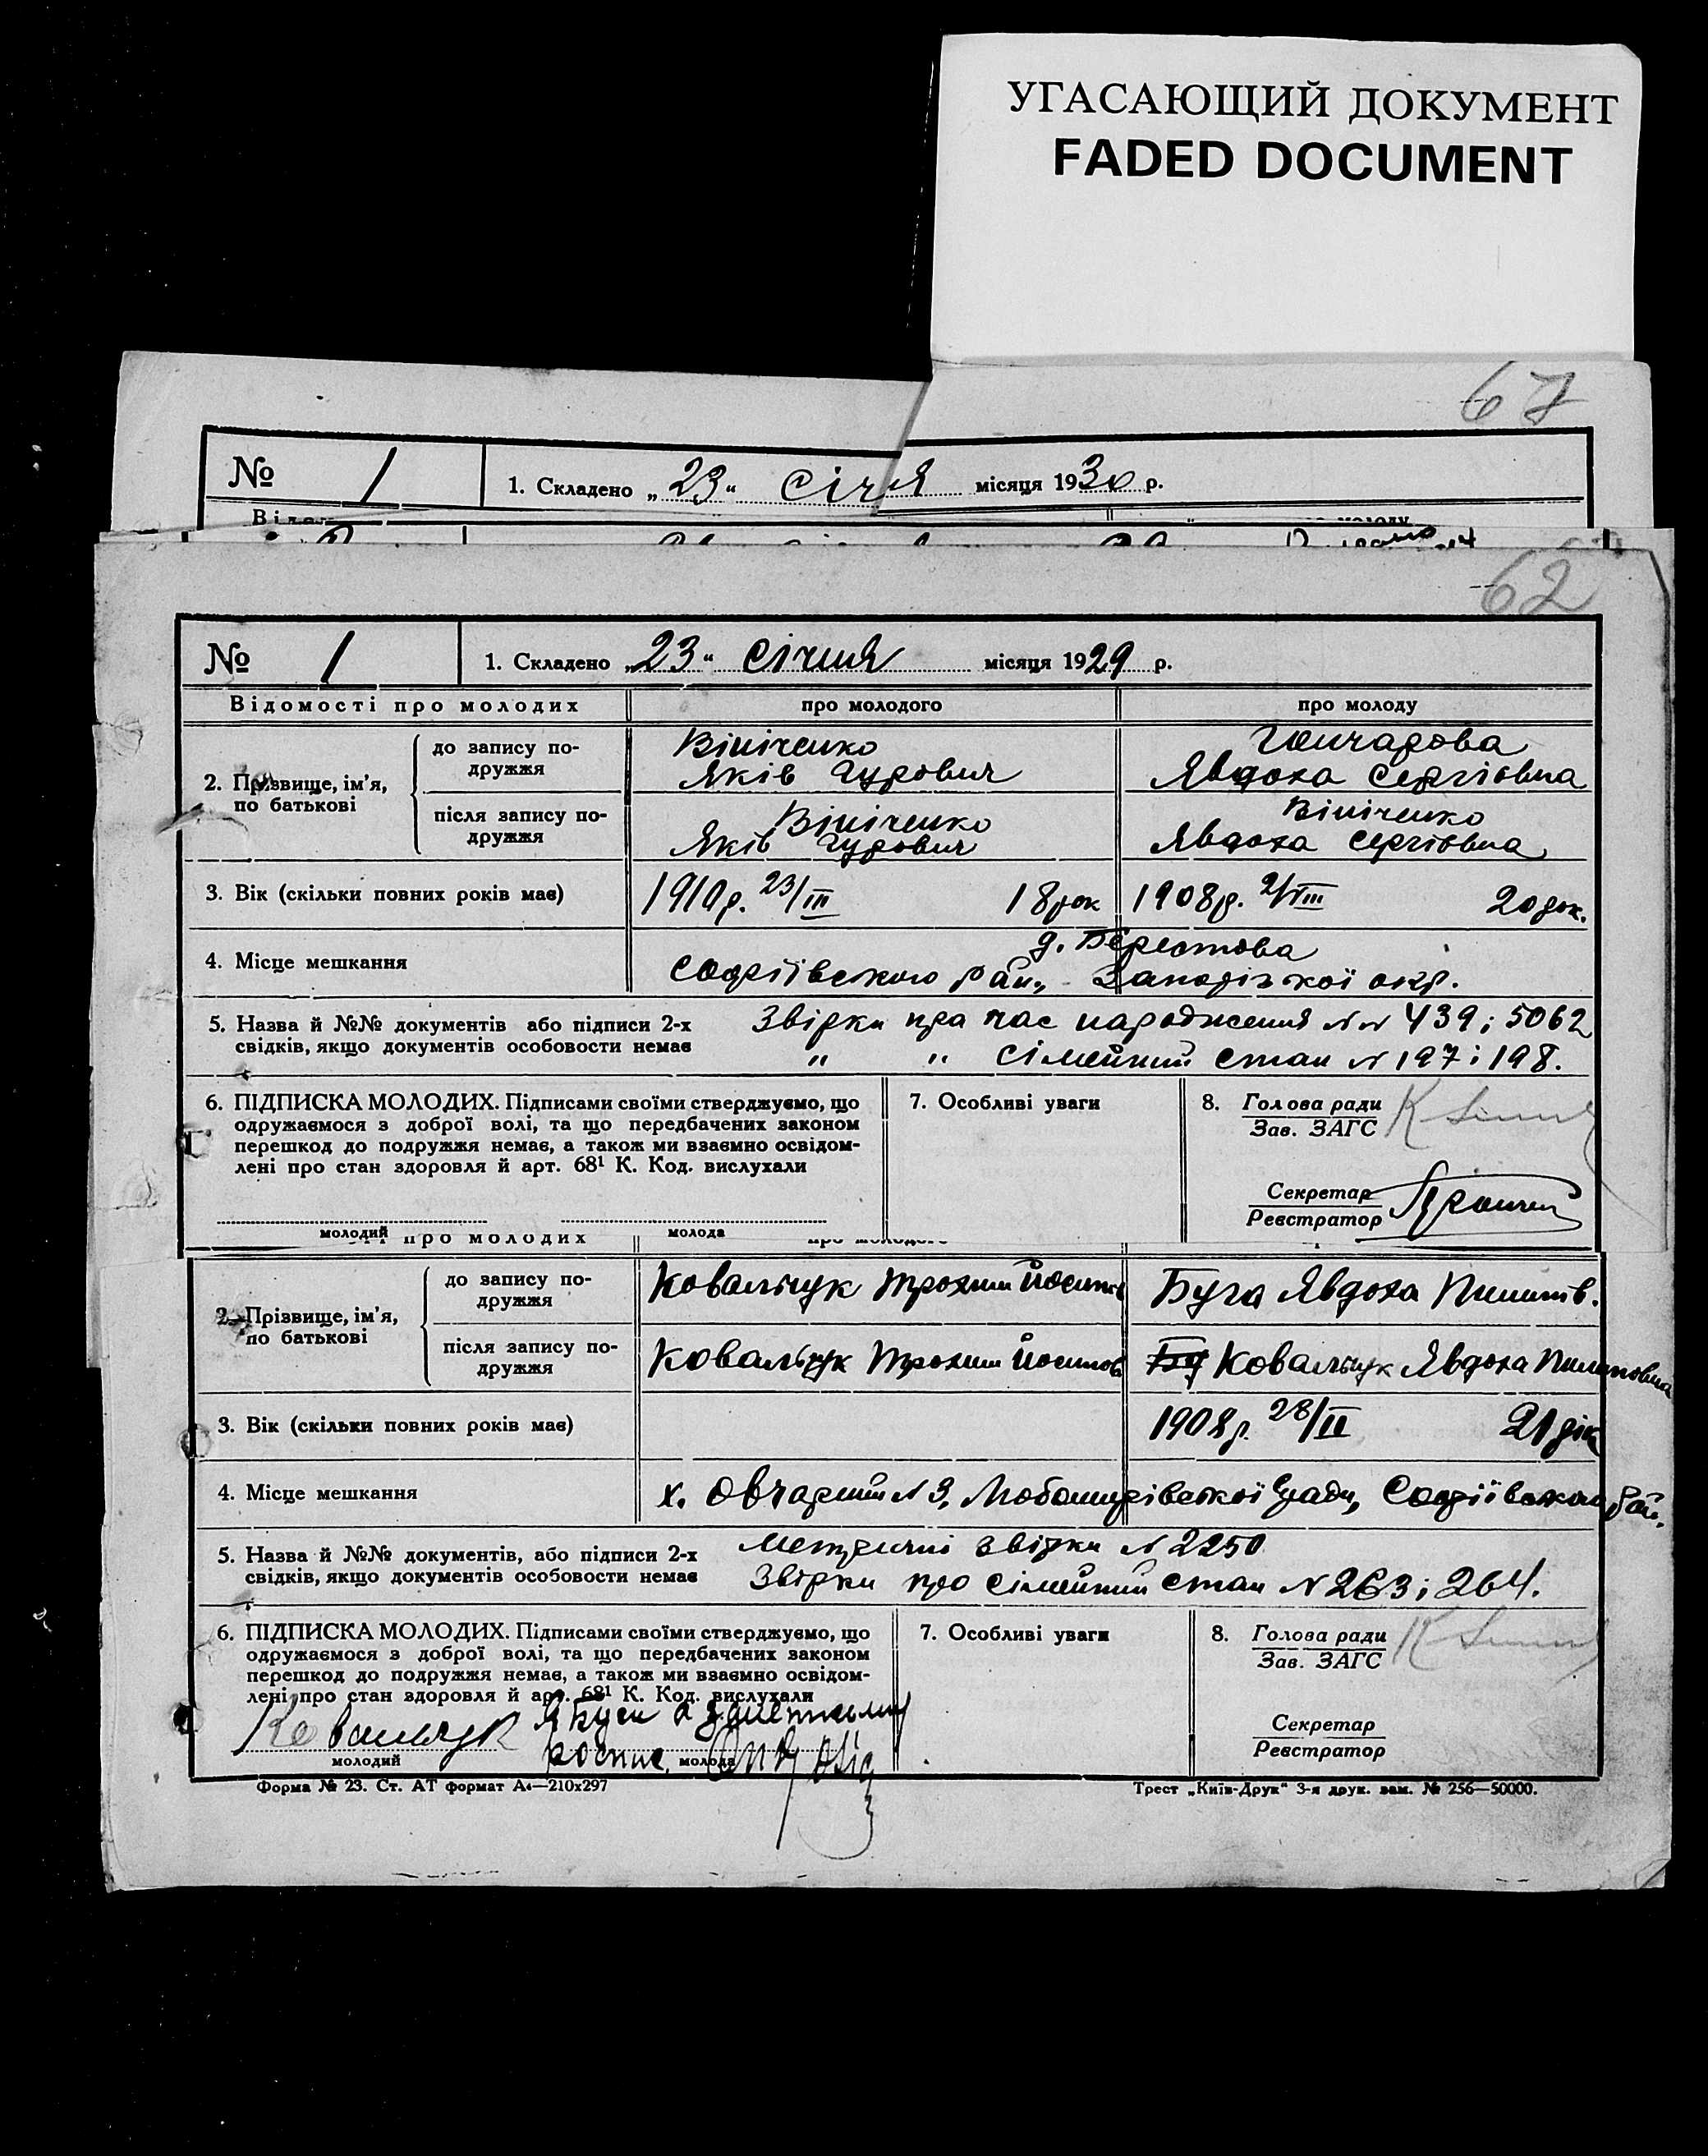 УГАСАЮЩИЙ ДОКУМЕНТ
FADED DOCUMENT
67
№ 1 1. Складено „23“ Січня місяця 1930 р.
62
№ 1 1. Складено „23“ Січня місяця 1929 р.
Відомості про молодих про молодого про молоду
2. Прізвище, ім'я, по батькові
до запису подружжя
Вініченко
Яків Гурович
Гончарова
Явдоха Сергіовна
після запису подружжя
Вініченко
Яків Гурович
Вініченко
Явдоха Сергіовна
3. Вік (скільки повних років має) 1910 р. 23/III 18 рок 1908 р. 2/VIII 20 рок.
4. Місце мешкання
д. Берестова
Софіївського рай., Запорізької окр.
5. Назва й №№ документів або підписи 2-х Звірки пра час народження № № 439 і 5062
свідків, якщо документів особовости немає „ „ сімейний стан № 197 і 198.
6. ПІДПИСКА МОЛОДИХ. Підписами своїми стверджуємо, що
одружаємося з доброї волі, та що передбачених законом
перешкод до подружжя немає, а також ми взаємно освідом-
лені про стан здоровля й арт. 68¹ К. Код. вислухали
молодий молода
7. Особливі уваги
8. Голова ради
Зав. ЗАГС
Секретар
Реєстратор
про молодих
2. Прізвище, ім'я, по батькові
до запису подружжя
Ковальчук Трохим Йосипов
Буга Явдоха Пилипів.
після запису подружжя
Ковальчук Трохим Йосипов
Бу Ковальчук Явдоха Пилиповна
3. Вік (скільки повних років має) 1908 р. 28/II 21 рік
4. Місце мешкання х. Овчарний № 3, Любомирівської Сради, Софіївського рай.
5. Назва й №№ документів, або підписи 2-х Метричні звірки № 2250
свідків, якщо документів особовости немає Звірки про сімейний стан № 263 і 264.
6. ПІДПИСКА МОЛОДИХ. Підписами своїми стверджуємо, що
одружаємося з доброї волі, та що передбачених законом
перешкод до подружжя немає, а також ми взаємно освідом-
лені про стан здоровля й арт. 68¹ К. Код. вислухали
Ковальчук
молодий молода
7. Особливі уваги
8. Голова ради
Зав. ЗАГС
Секретар
Реєстратор
Форма № 23. Ст. АТ формат А₄—210х297 Трест „Київ-Друк“ 3-я друк. зам. № 256—50000.